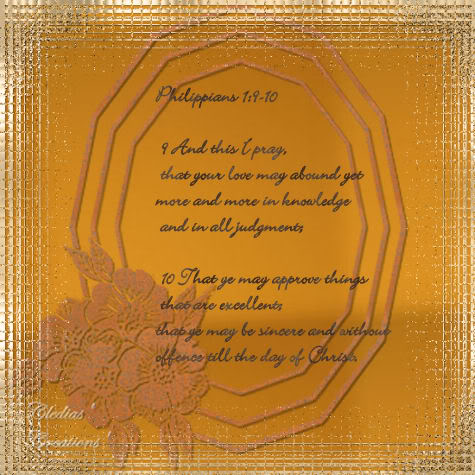 Philippians 1:9-10
9 And this I pray,
that your love may abound yet
more and more in knowledge
and in all judgment;
10 That ye may approve things
that are excellent;
that ye may be sincere and without
offence till the day of Christ.
Cledias'
Creations